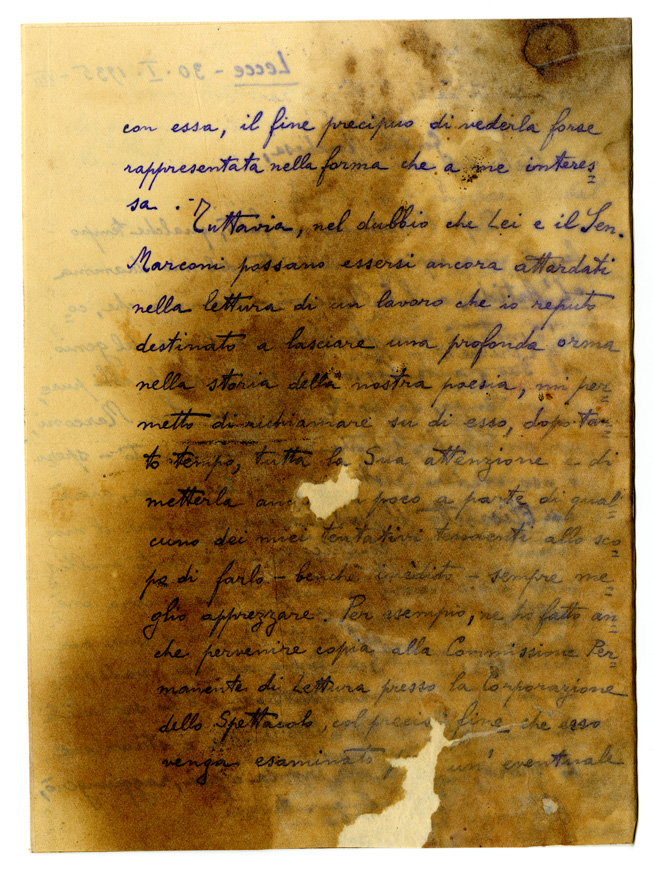 con essa, il fine precipuo di vederla forse
rappresentata nella forma che a me interes=
sa. - Tuttavia, nel dubbio che Lei e il Sen.
Marconi possano essersi ancora attardati
nella lettura di un lavoro che io reputo
destinato a lasciare una profonda orma
nella storia della nostra poesia, mi per=
metto di richiamare su di esso, dopo tan=
to tempo, tutta la Sua attenzione e di
metterla poco a parte di qual=
cuno dei miei tentativi tendenti allo sco=
po di farlo - benchè inèdito - sempre me=
glio apprezzare. Per esempio, ne ho fatto an=
che pervenire copia alla Commissione Per=
manente di Lettura presso la Corporazione
dello Spettacolo, col preciso fine che esso
venga esaminato un' eventuale
Lecce - 30 - I - 1935